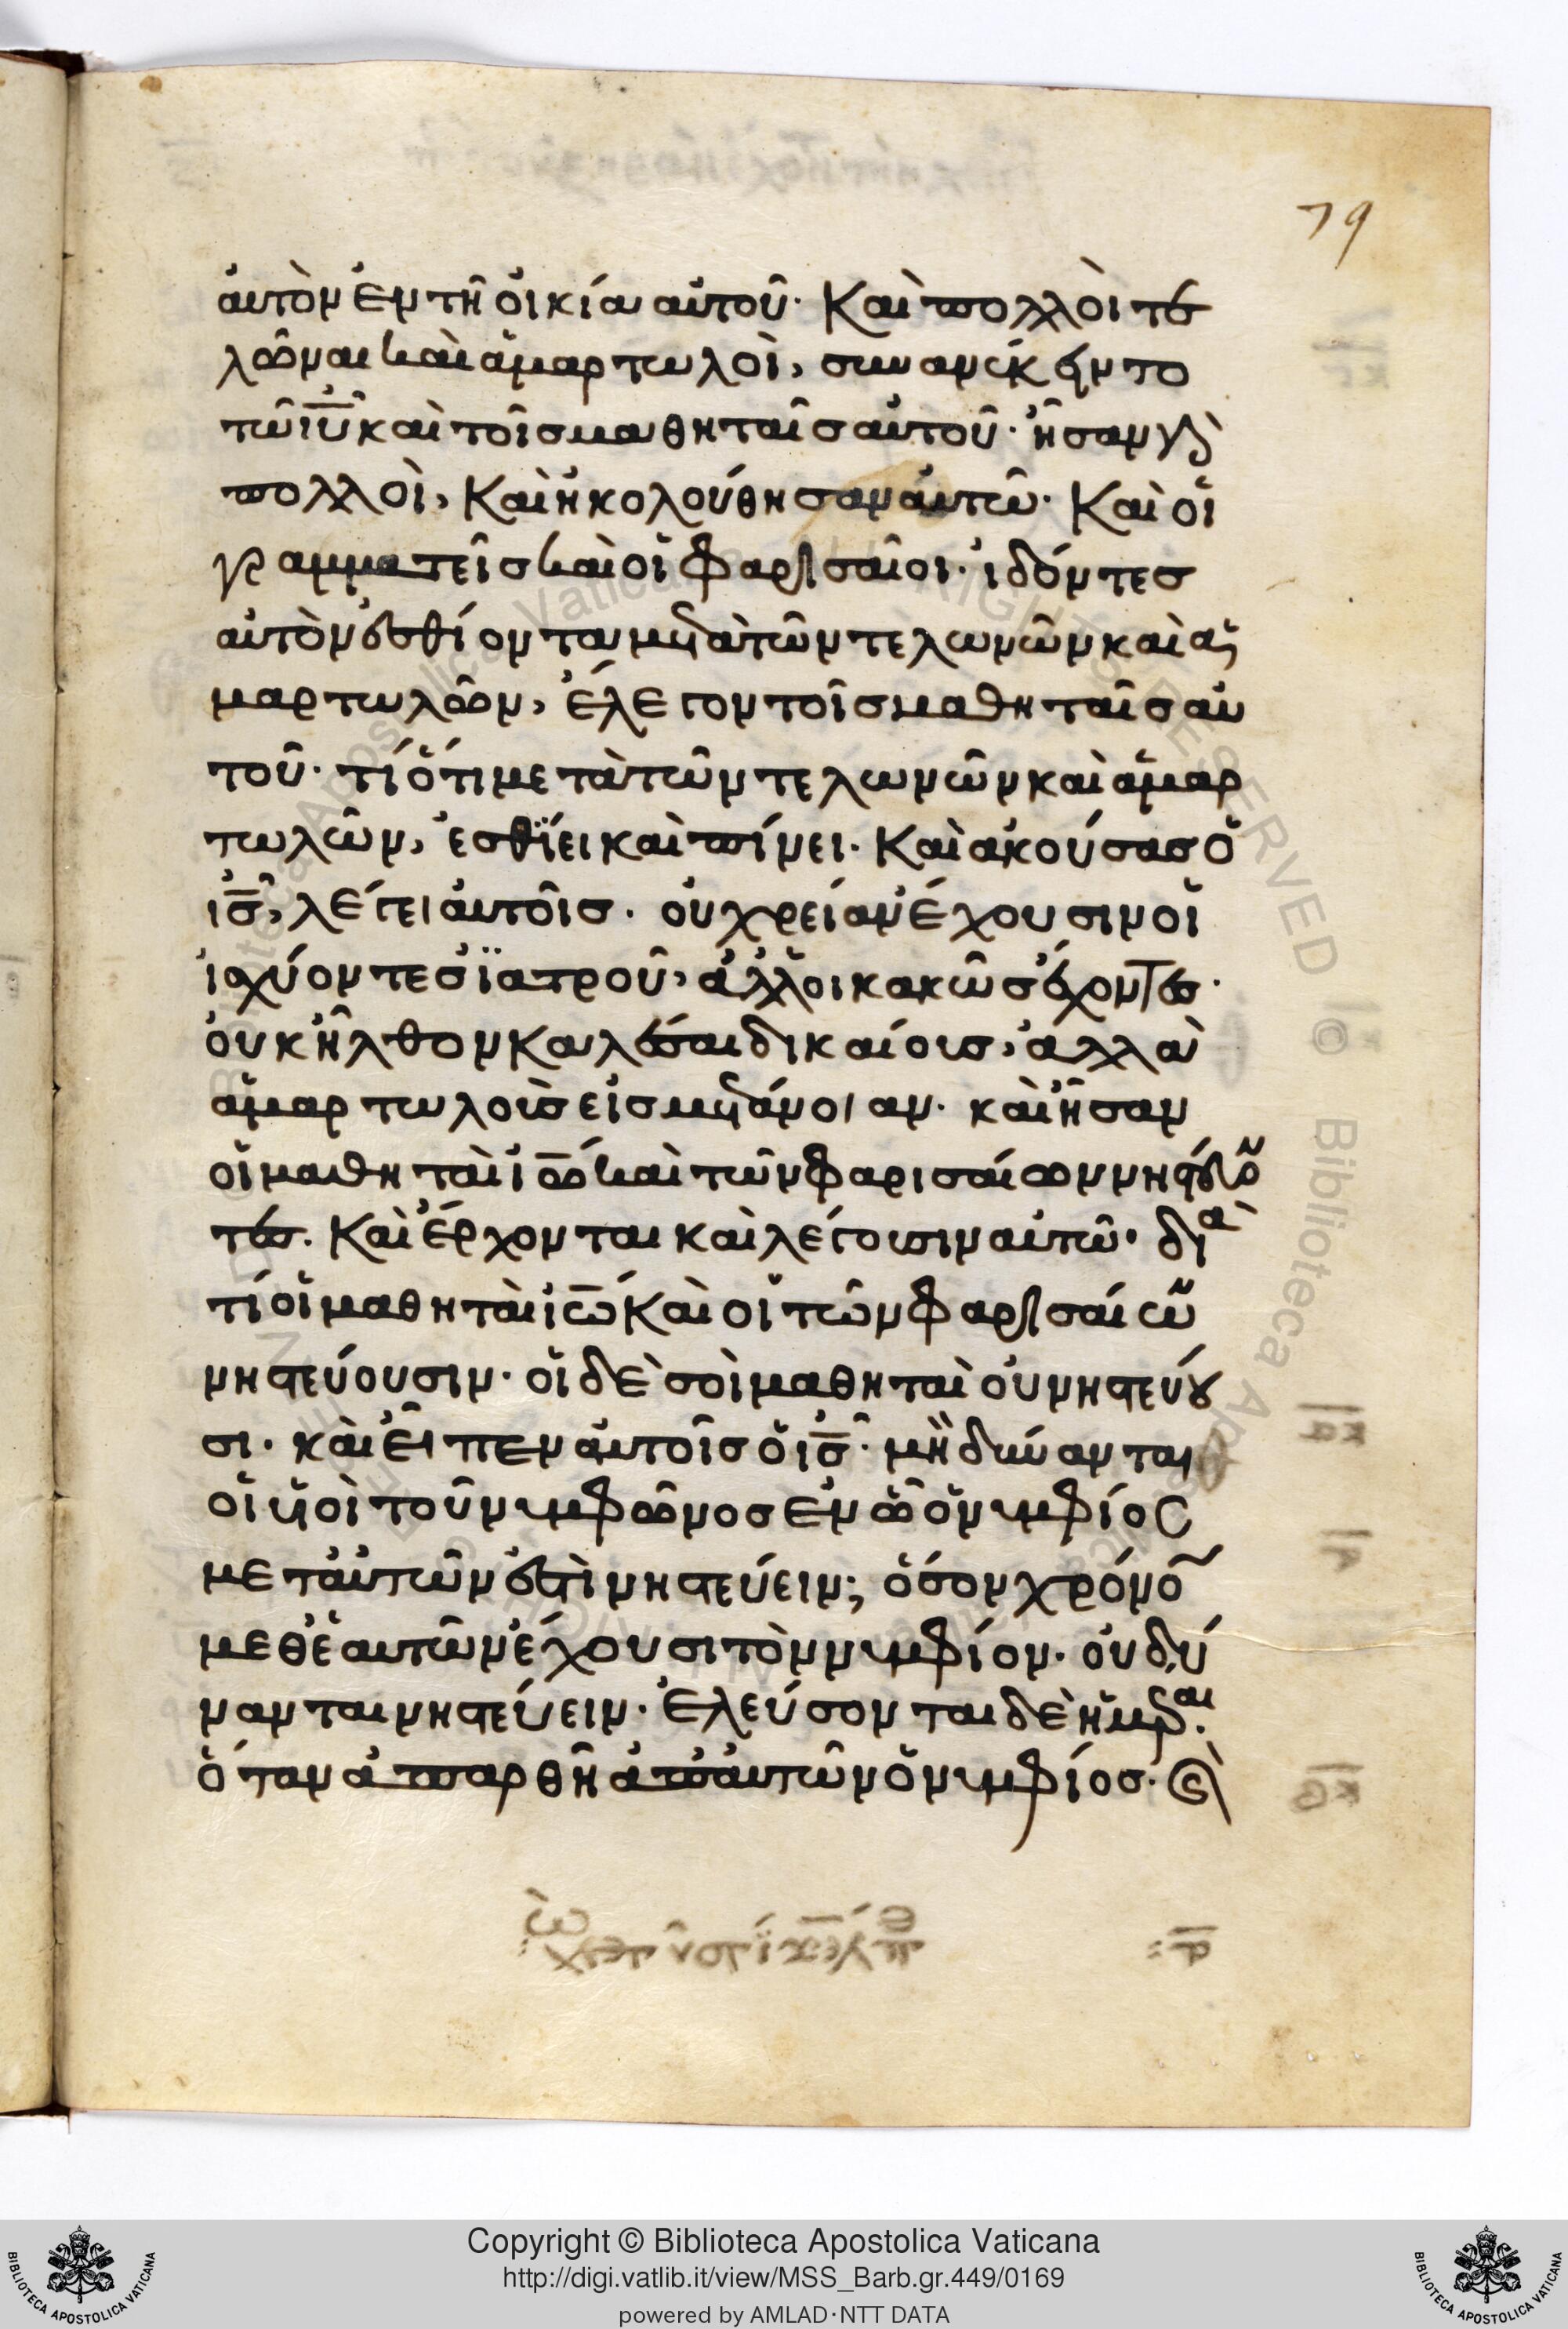 79
ἀυτὸν ἐν τῆ ὀικία αὐτοῦ· Καὶ πολλὸι τε
λῶναι καὶ ἁμαρτωλοὶ, συνανέκειντο
τῶ ιῦ καὶ τοῖσ μαθηταῖσ αὐτοῦ· ἦσαν γὰρ
πολλοὶ, Καὶ ἠκολούθησαν ἀυτῶ· Καὶ οἱ
γραμματεῖσ καὶ οἱ φαρισαῖοι· ἰδόντεσ
αὐτὸν ἐσθίοντα μετὰ τῶν τελωνῶν καὶ ἁ
μαρτωλῶν, ἔλεγον τοῖσ μαθηταῖσ αὐ
τοῦ· τί ὅτι μετὰ τῶν τελωνῶν καὶ ἁμαρ
τωλῶν, ἐσθΐει καὶ πίνει· Καὶ ἀκούσασ ὁ
ισ, λέγει ἀυτοῖσ· οὐ χρείαν ἔχουσιν οἱ
ἰσχύοντεσ ἰατροῦ, ἀλλ' οἱ κακῶσ ἔχοντεσ·
ὀυκ ἦλθον καλέσαι δικαίουσ, ἀλλὰ
ἁμαρτωλοὺσ εἰσ μετάνοιαν· καὶ ἦσαν
οἱ μαθηταὶ ἰω καὶ τῶν φαρισαίων νηστεύον
τεσ. Καὶ ἔρχονται καὶ λέγουσιν αὐτῶ· διὰ
τί οἱ μαθηταὶ ἰω Καὶ οἱ τῶν φαρισαίων
νηστεύουσιν· οἱ δὲ σοὶ μαθηταὶ οὐ νηστεύου
σι· καὶ εἶπεν ἀυτοῖσ ὁ ισ· μὴ δύνανται
οἱ υἱοὶ τοῦ νυμφῶνοσ ἐν ὧ ὁ νυμφίοσ
μετ' ἀυτῶν ἐστὶ νηστεύειν; ὅσον χρόνον
μεθ' ἑαυτῶν ἔχουσι τὸν νυμφίον· οὐ δύ
νανται νηστεύειν· Ἐλεύσονται δὲ ἡμέραι·
ὅταν ἀπαρθῆ ἀπ' ἀυτῶν ὁ νυμφίοσ· Καὶ
Copyright © Biblioteca Apostolica Vaticana
http://digi.vatlib.it/view/MSS_Barb.gr.449/0169
powered by AMLAD·NTT DATA